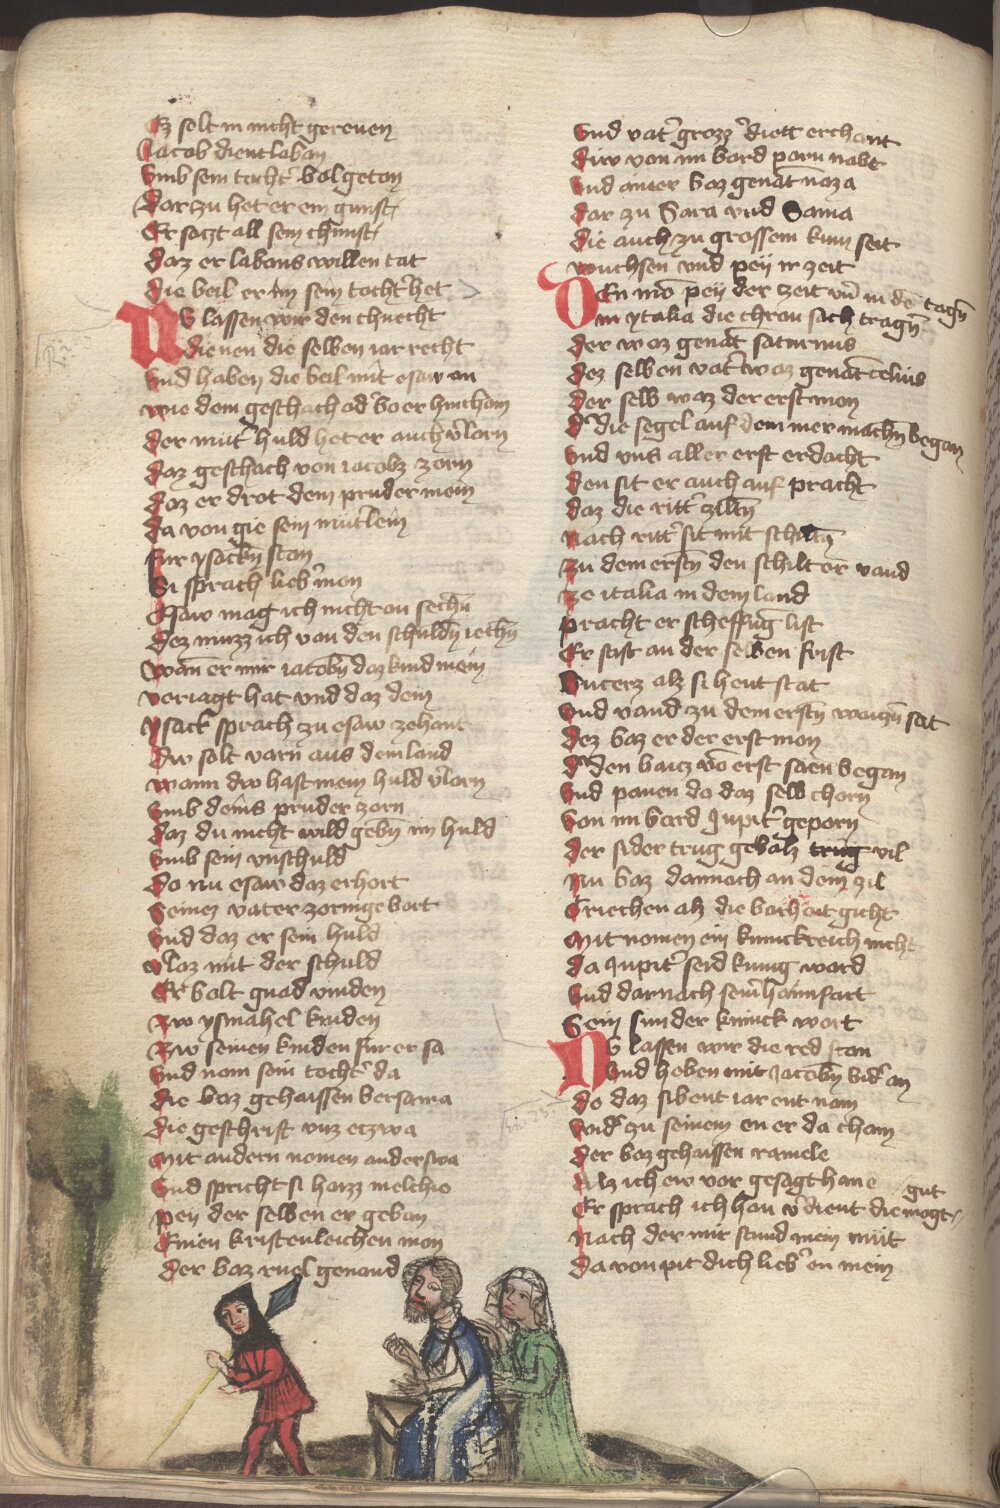 Ez solt in nicht gereuen
Jacob dient laban
Umb sein tocht' bolgeton
Dar zu het er ein gunst
Er saczt all sein chunst
daz er labans willen tat
die beil er im sein tocht' het
NU lassen wir den chnecht
dienen die selben iar recht
Und haben die beil mit esaw an
wie dem geschach od' bo er hin cham
der mut' huld het er auch v'lorn
daz geschach von iacobz zorn
daz er drot dem pruder mein
da von gie sein mut'lein
fur ysackn stan
Si sprach lieb' mon
Esaw mag ich nicht an sechn
dez muzz ich von den schuldn iechn
wan er mir iacobn daz kind mein
veriagt hat und daz dein
ysack sprach zu esaw zehant
dw solt varn aus dem land
wann dw hast mein huld v'lorn
umb deins pruder zorn
daz du nicht wild gebn im huld
Umb sein unschuld
do nu esaw daz erhort
Seinez vater zornige bort
Und daz er sein huld
v'loz mit der schuld
Er bolt gnad vinden
Zw ysmahel kinden
Zw seinen kinden fur er sa
Und nom sein tocht' da
die boz gehaissen bersama
die geschrift unz etzwa
mit andern nomen anderswa
Und spricht si hazz melchio
pey der selben er geban
Einen kristenleichen mon
der boz ruel genand
Und vat' grozz' diett erchant
diw von im bard parn nabt
Und ainer boz genāt naza
dar zu Sara und Sama
die auch zu grossem kum seit
wuchsen und pey ir zeit
DEn mō pey der zeit uñ in de tagn
in ytalia die chron sach tragn
der woz genāt saturnus
dez selben vat' woz genāt celius
der selb waz der erst mon
d' die segel auf dem mer machn began
Und uns aller erst erdacht
den sit er auch auf pracht
daz die ritt' ziltn
nach ritt' sit mit schiltn
zu dem erstn den schilt er vand
ze italia in dem land
pracht er scheffung list
Er stift an der selben frist
Sucerz alz si heut stat
Und vand zu dem erstn waizn sat
dez boz er der erst mon
d' den baicz vō erst saen began
Und pauen do daz selb chorn
Von im bard Jupit' geporn
der sider trug gebalz trug vil
Nu boz dannach an dem zil
Criechen alz die barhait gicht
Mit nomen ein kunickreich nicht
da Jupit' seid kunig ward
Und darnach sein hainfart
Sein sun der kunick wart
NU lassen wir die red stan
Und heben mit Jacobn bid' an
do daz sibent iar ent nam
wid' zu seinem en er da cham
der boz gehaissen ramele
Alz ich ew vor gesagt hane
Er sprach ich han v'dient die mogt gut
Nach der mir stund mein mut
Da von pit dich lieb' en mein